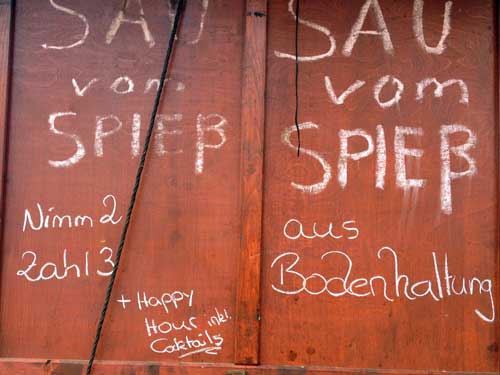 SAU
vom
SPIEß
Nimm 2
Zahl 3
+ Happy
Hour inkl.
Cocktails
SAU
vom
SPIEß
aus
Bodenhaltung